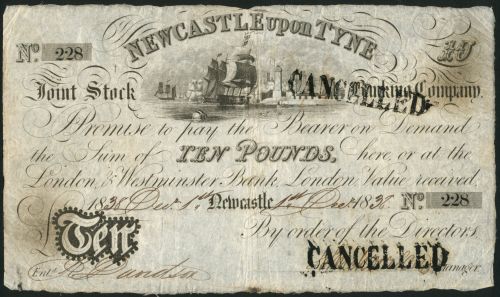 NEWCASTLE upon TYNE
No. 228 £10
Joint Stock Banking Company.
CANCELLED
Promise to pay the Bearer on Demand
the Sum of TEN POUNDS, here, or at the
London & Westminster Bank, London, Value received,
1838 Decr. 1st Newcastle 1st Decr. 1838 No. 228
By order of the Directors,
Ten
CANCELLED
Entd. Manager.